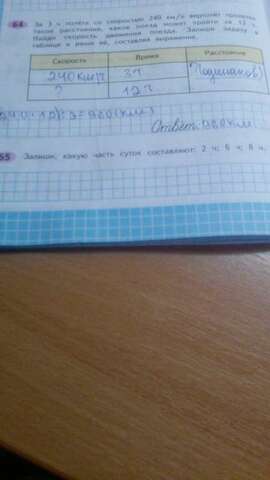 64 За 3 ч полёта со скоростью 240 км/ч вертолёт пролетел
такое расстояние, какое поезд может пройти за 12 ч.
Найди скорость движения поезда. Запиши задачу в
таблице и реши её, составляя выражение.
Скорость Время Расстояние
240км/ч 3ч
? 12ч
Ответ:
55 Запиши, какую часть суток составляют: 2 ч; 6 ч; 8 ч.